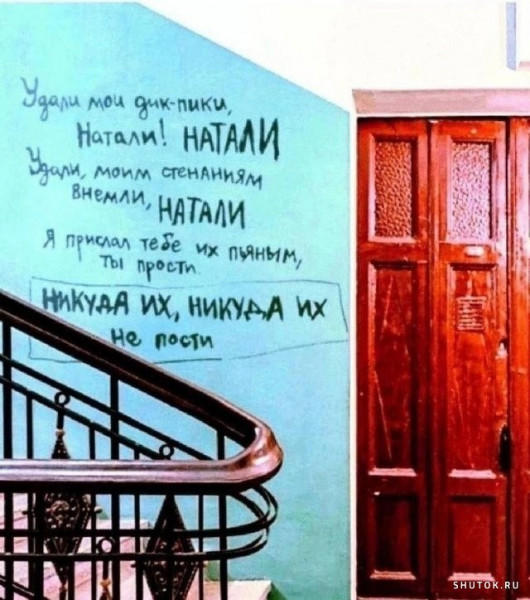 Удали мои дик-пики,
Натали! НАТАЛИ
Удали, моим стенаниям
внемли, НАТАЛИ
Я прислал тебе их пьяным,
ты прости
НИКУДА ИХ, НИКУДА ИХ
не пости
SHUTOK.RU